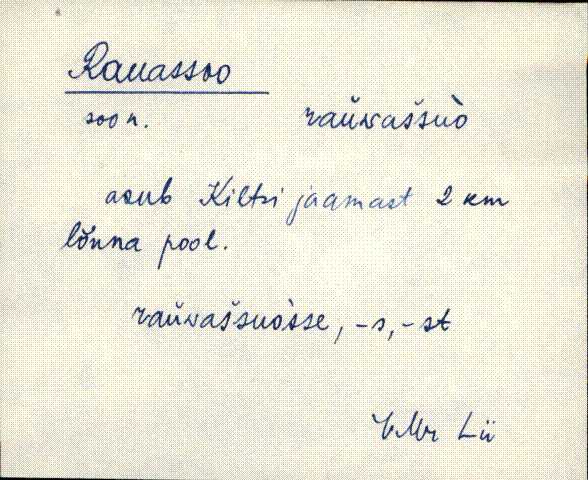 Rauassoo
soo n. raŭvaššuò
asub Kiltsi jaamast 2 km
lõuna pool.
raŭvaššuòsse, -s, -st
VMr Lii